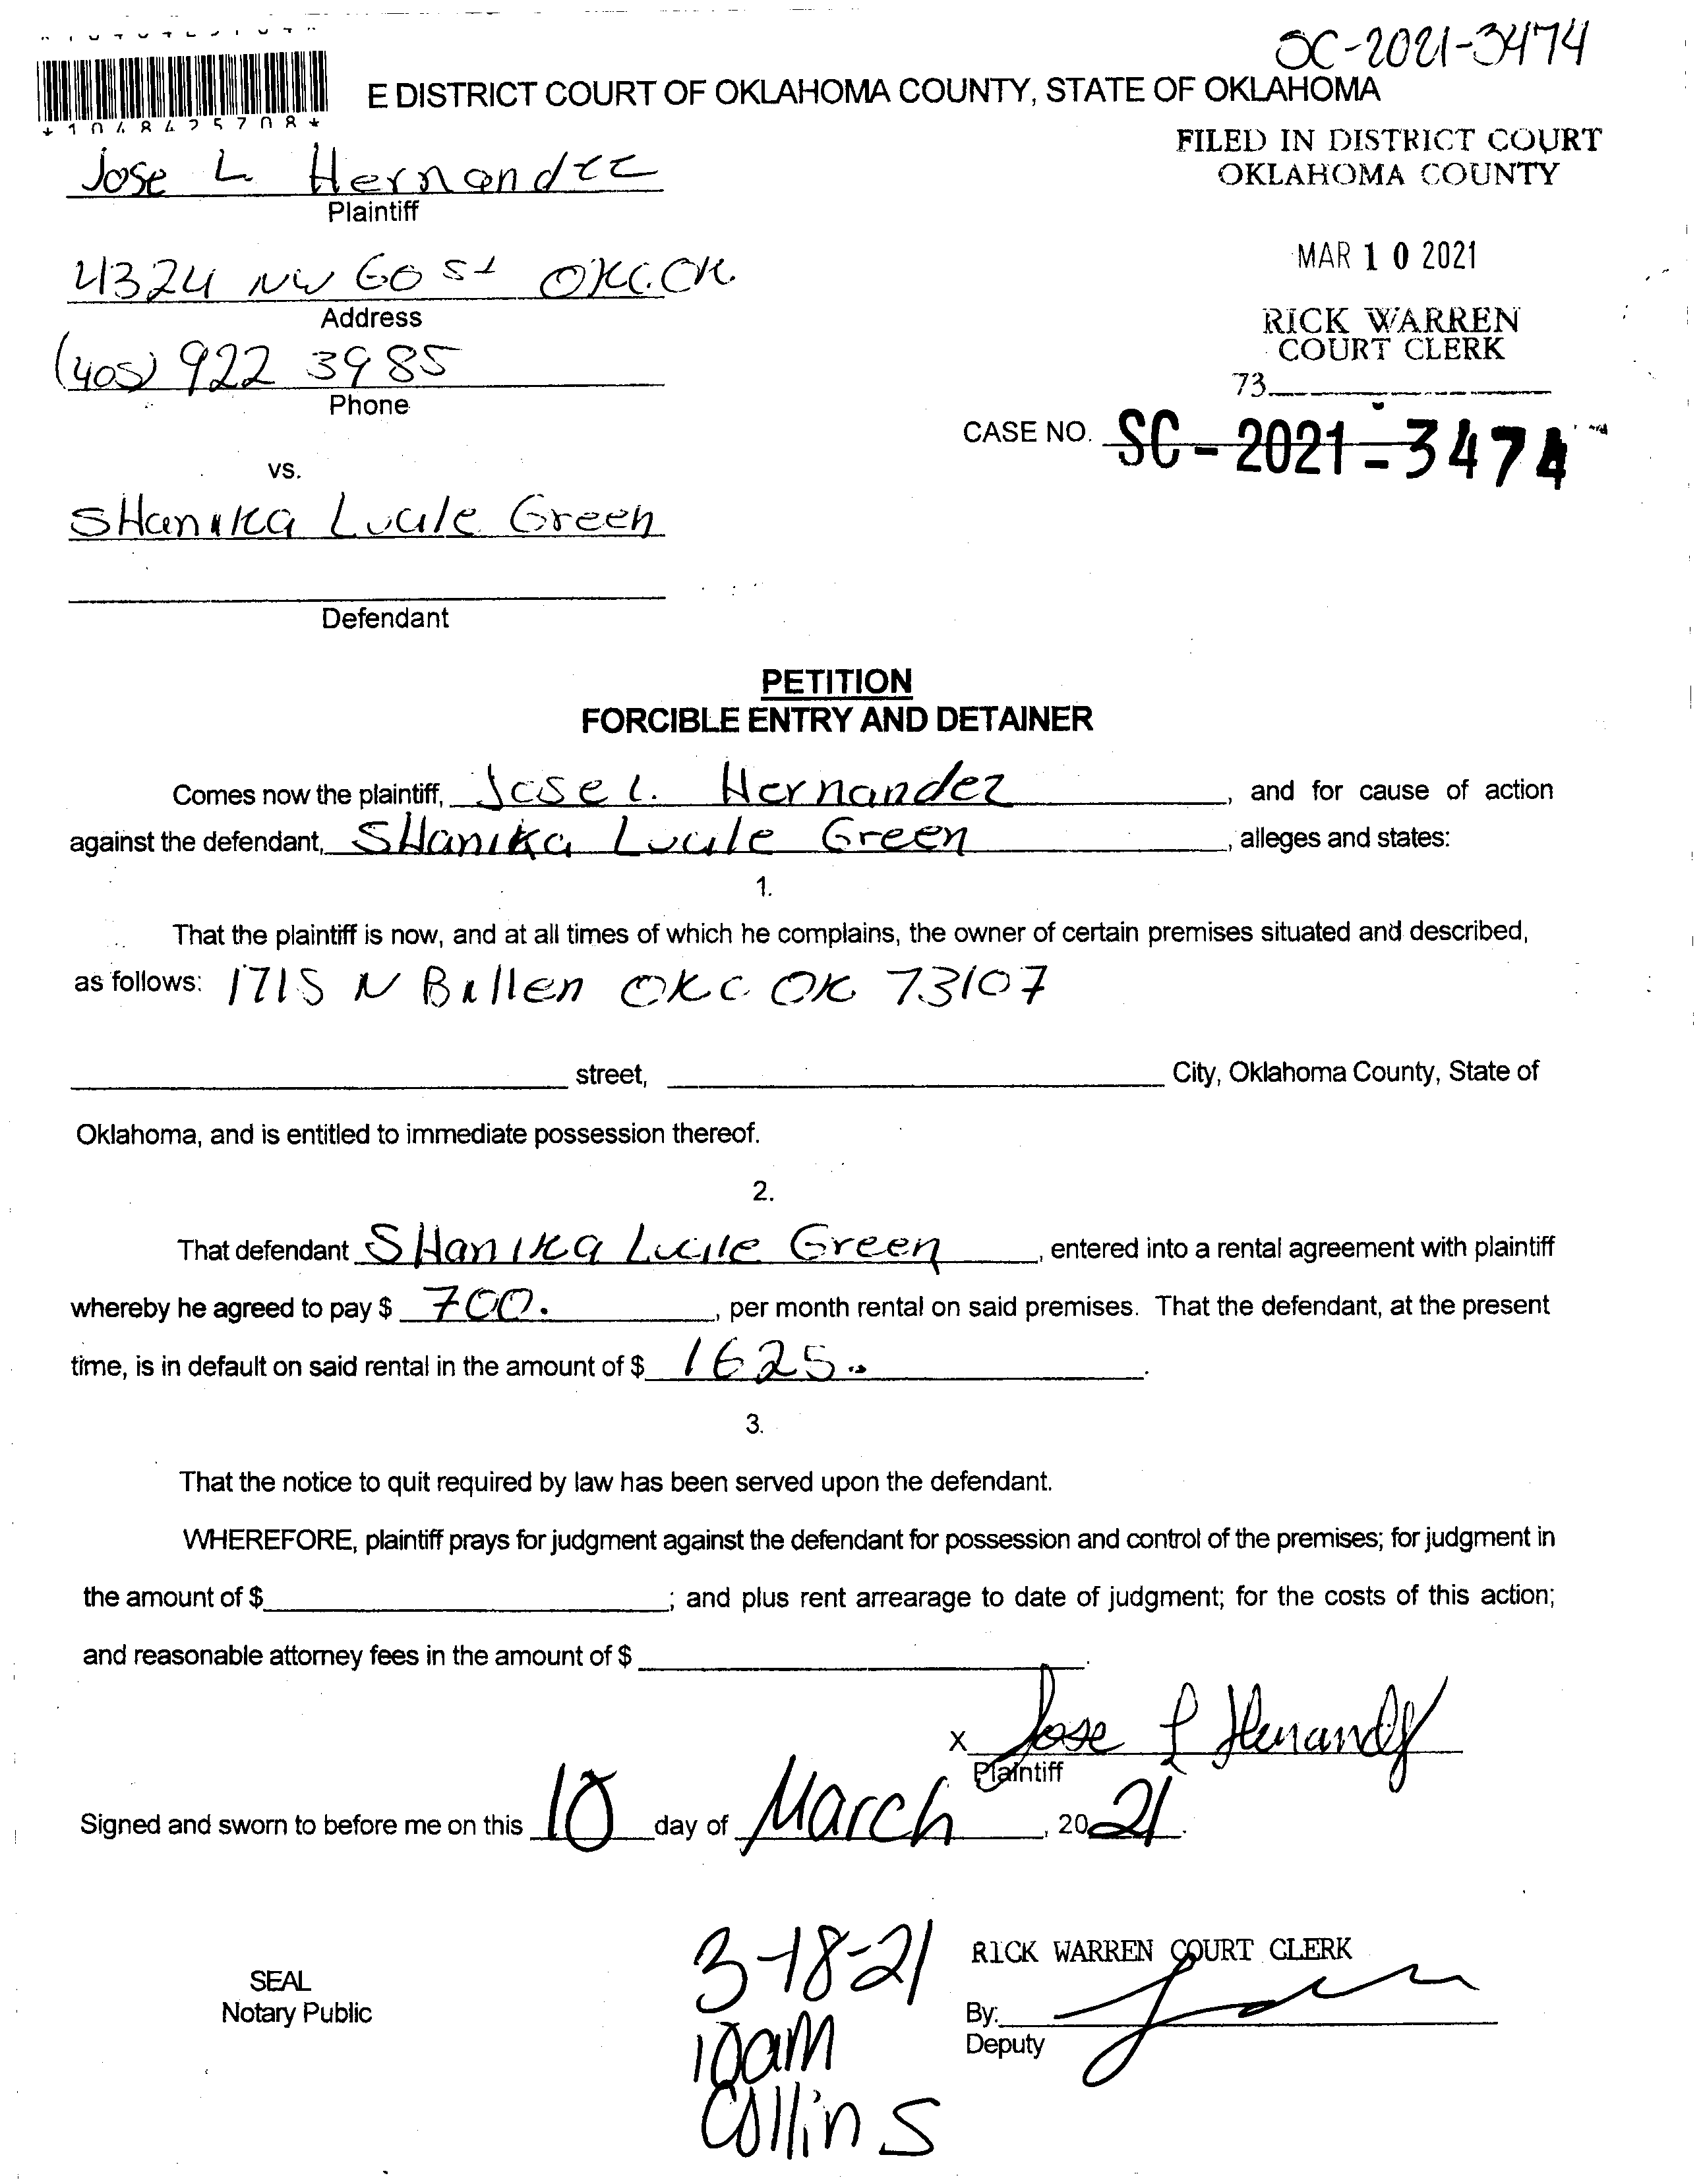 SC-2021-3474
E DISTRICT COURT OF OKLAHOMA COUNTY, STATE OF OKLAHOMA
*1048425708*
FILED IN DISTRICT COURT
OKLAHOMA COUNTY
Jose L. Hernandez
Plaintiff
MAR 10 2021
4324 NW 60 St OKC.OK.
Address
RICK WARREN
COURT CLERK
(405) 922 3985
73
Phone
CASE NO. SC-2021-3474
vs.
SHanika Lucile Green
Defendant
PETITION
FORCIBLE ENTRY AND DETAINER
Comes now the plaintiff, Jose L. Hernandez, and for cause of action
against the defendant, SHanika Lucile Green, alleges and states:
1.
That the plaintiff is now, and at all times of which he complains, the owner of certain premises situated and described,
as follows: 1715 N OKC OK 73107
street, City, Oklahoma County, State of
Oklahoma, and is entitled to immediate possession thereof.
2.
That defendant SHanika Lucile Green, entered into a rental agreement with plaintiff
whereby he agreed to pay $ 700., per month rental on said premises. That the defendant, at the present
time, is in default on said rental in the amount of $ 1625...
3.
That the notice to quit required by law has been served upon the defendant.
WHEREFORE, plaintiff prays for judgment against the defendant for possession and control of the premises; for judgment in
the amount of $ ; and plus rent arrearage to date of judgment; for the costs of this action;
and reasonable attorney fees in the amount of $ .
X Jose L Hernandez
Plaintiff
Signed and sworn to before me on this 10 day of March, 2021.
3-18-21
RICK WARREN COURT CLERK
SEAL
Notary Public
By:
10am
Deputy
Collins